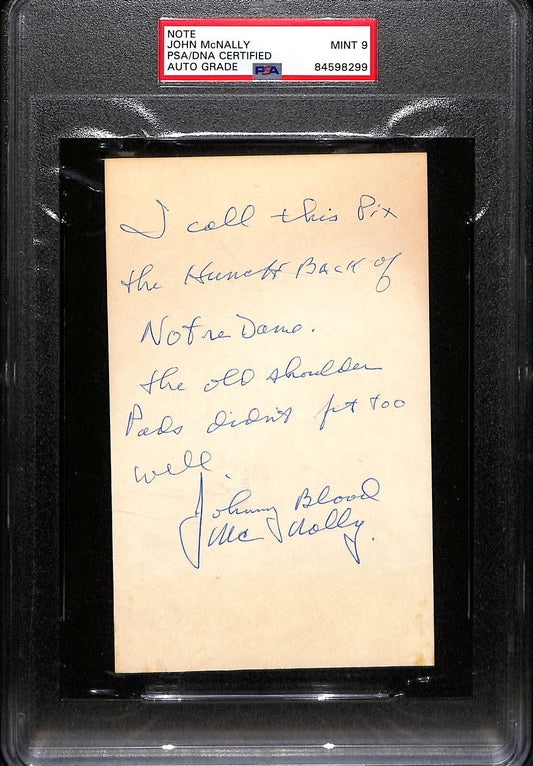 NOTE
JOHN McNALLY MINT 9
PSA/DNA CERTIFIED
AUTO GRADE PSA 84598299
I call this Pix
the Hunch Back of
Notre Dame.
the old shoulder
Pads didn't fit too
well.
Johnny Blood
McNally.